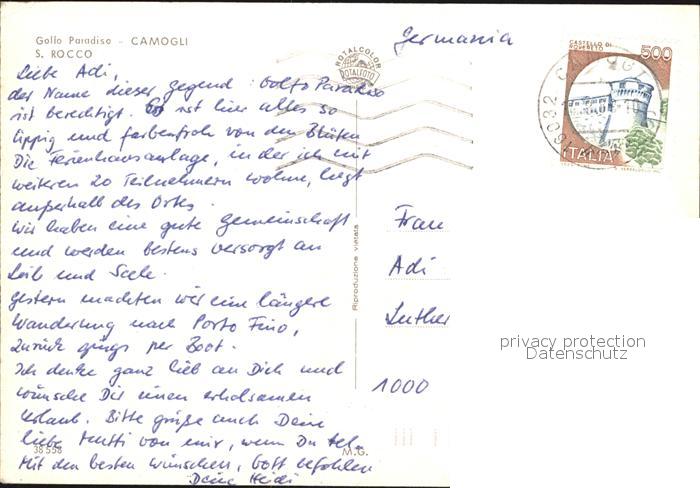 Golfo Paradiso - CAMOGLI
S. ROCCO
Liebe Adi,
der Name dieser Gegend: Golfo Paradiso
ist berechtigt. Es ist hier alles so
üppig und farbenfroh von den Blüten
Die Ferienhausanlage, in der ich mit
weiteren 20 Teilnehmern wohne, liegt
außerhalb des Ortes.
Wir haben eine gute Gemeinschaft
und werden bestens versorgt an
Leib und Seele.
Gestern machten wir eine längere
Wanderung nach Porto Fino,
zurück gings per Boot.
Ich denke ganz lieb an Dich und
wünsche Dir einen erholsamen
Urlaub. Bitte grüße auch Deine
liebe Mutti von mir, wenn Du tel.
Mit den besten Wünschen, Gott befohlen
Deine Heidi
38558
M.G.
ROTALCOLOR
ROTALFOTO
Riproduzione vietata
Germania
CASTELLO DI
ROVERETO
500
ITALIA
16032
Frau
Adi
Luther
1000
privacy protection
Datenschutz